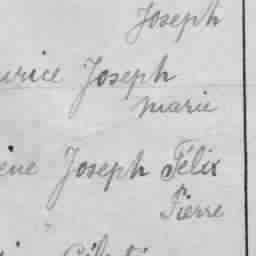 Joseph
urice Joseph
Marie
ène Joseph Félix
Pierre